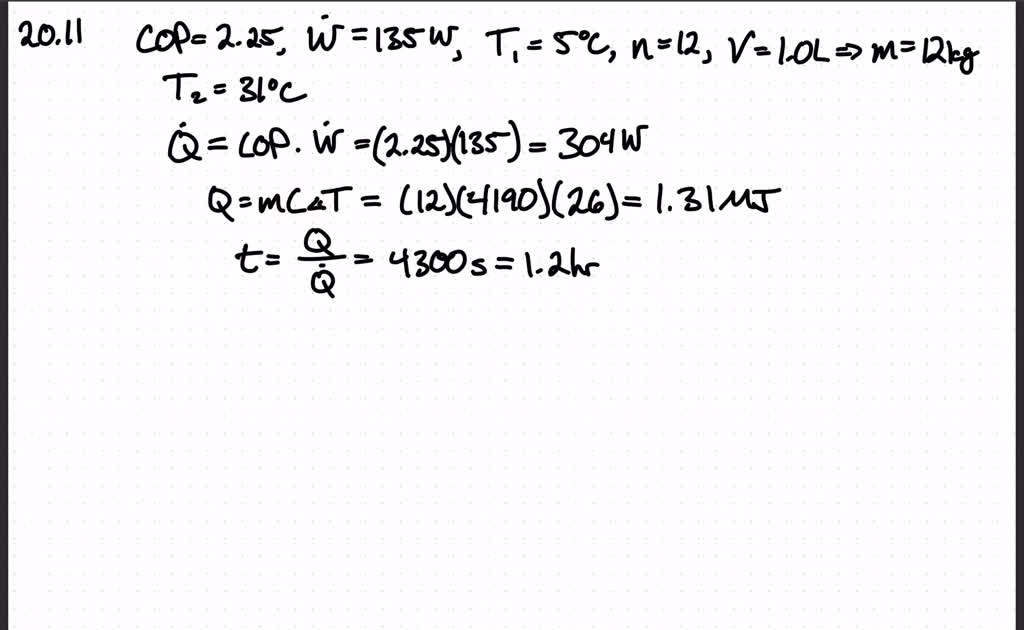 20.11 COP = 2.25, Ẇ = 135W, T₁ = 5°C, n = 12, V = 1.0L ⇒ m = 12kg
T₂ = 31°C
Q̇ = COP · Ẇ = (2.25)(135) = 304W
Q = mCΔT = (12)(4190)(26) = 1.31MJ
t = Q/Q̇ = 4300s = 1.2hr